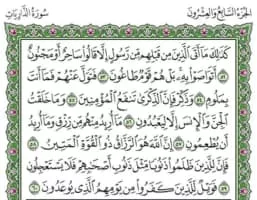 الجزء السابع والعشرون سورة الذاريات
كَذَٰلِكَ مَا أَتَى الَّذِينَ مِن قَبْلِهِم مِّن رَّسُولٍ إِلَّا قَالُوا سَاحِرٌ أَوْ مَجْنُونٌ
٥٢ أَتَوَاصَوْا بِهِ بَلْ هُمْ قَوْمٌ طَاغُونَ ٥٣ فَتَوَلَّ عَنْهُمْ فَمَا أَنتَ
بِمَلُومٍ ٥٤ وَذَكِّرْ فَإِنَّ الذِّكْرَىٰ تَنفَعُ الْمُؤْمِنِينَ ٥٥ وَمَا خَلَقْتُ
الْجِنَّ وَالْإِنسَ إِلَّا لِيَعْبُدُونِ ٥٦ مَا أُرِيدُ مِنْهُم مِّن رِّزْقٍ وَمَا أُرِيدُ
أَن يُطْعِمُونِ ٥٧ إِنَّ اللَّهَ هُوَ الرَّزَّاقُ ذُو الْقُوَّةِ الْمَتِينُ ٥٨
فَإِنَّ لِلَّذِينَ ظَلَمُوا ذَنُوبًا مِّثْلَ ذَنُوبِ أَصْحَابِهِمْ فَلَا يَسْتَعْجِلُونِ
٥٩ فَوَيْلٌ لِّلَّذِينَ كَفَرُوا مِن يَوْمِهِمُ الَّذِي يُوعَدُونَ ٦٠